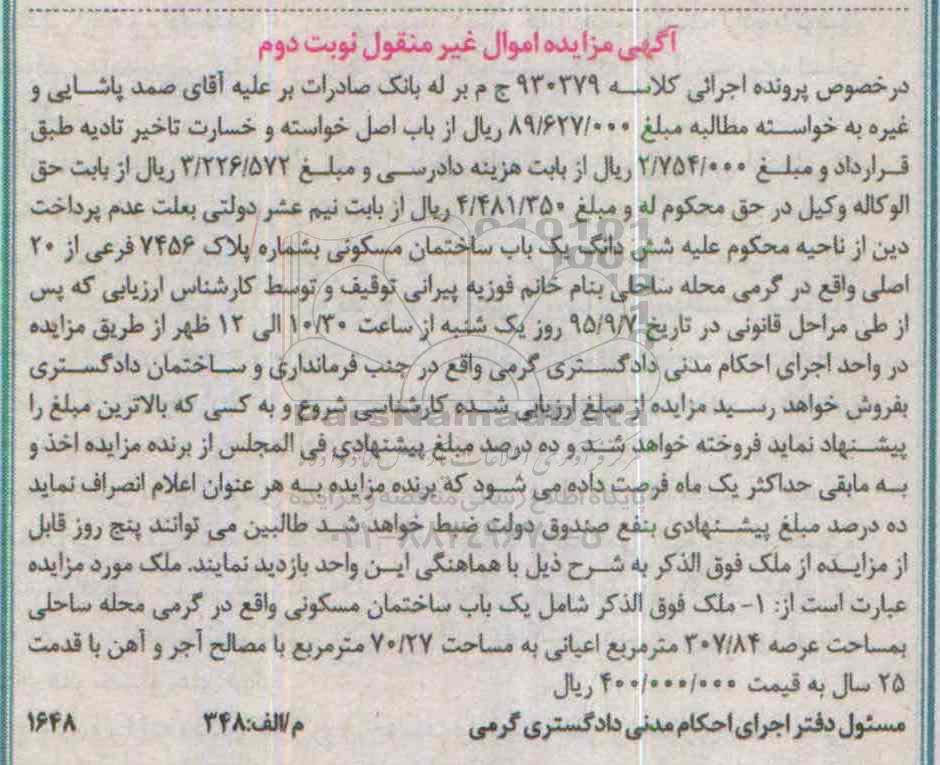 آگهی مزایده اموال غیر منقول نوبت دوم
درخصوص پرونده اجرائی کلاسه ۹۳۰۳۷۹ ج م بر له بانک صادرات بر علیه آقای صمد پاشایی و
غیره به خواسته مطالبه مبلغ ۸۹/۶۲۷/۰۰۰ ریال از باب اصل خواسته و خسارت تاخیر تادیه طبق
قرارداد و مبلغ ۲/۷۵۴/۰۰۰ ریال از بابت هزینه دادرسی و مبلغ ۳/۲۲۶/۵۷۲ ریال از بابت حق
الوکاله وکیل در حق محکوم له و مبلغ ۴/۴۸۱/۳۵۰ ریال از بابت نیم عشر دولتی بعلت عدم پرداخت
دین از ناحیه محکوم علیه شش دانگ یک باب ساختمان مسکونی بشماره پلاک ۷۴۵۶ فرعی از ۲۰
اصلی واقع در گرمی محله ساحلی بنام خانم فوزیه پیرانی توقیف و توسط کارشناس ارزیابی که پس
از طی مراحل قانونی در تاریخ ۹۵/۹/۷ روز یک شنبه از ساعت ۱۰/۳۰ الی ۱۲ ظهر از طریق مزایده
در واحد اجرای احکام مدنی دادگستری گرمی واقع در جنب فرمانداری و ساختمان دادگستری
بفروش خواهد رسید مزایده از مبلغ ارزیابی شده کارشناسی شروع و به کسی که بالاترین مبلغ را
پیشنهاد نماید فروخته خواهد شد و ده درصد مبلغ پیشنهادی فی المجلس از برنده مزایده اخذ و
به مابقی حداکثر یک ماه فرصت داده می شود که برنده مزایده به هر عنوان اعلام انصراف نماید
ده درصد مبلغ پیشنهادی بنفع صندوق دولت ضبط خواهد شد طالبین می توانند پنج روز قابل
از مزایده از ملک فوق الذکر به شرح ذیل با هماهنگی این واحد بازدید نمایند. ملک مورد مزایده
عبارت است از: ۱- ملک فوق الذکر شامل یک باب ساختمان مسکونی واقع در گرمی محله ساحلی
بمساحت عرصه ۳۰۷/۸۴ مترمربع اعیانی به مساحت ۷۰/۲۷ مترمربع با مصالح آجر و آهن با قدمت
۲۵ سال به قیمت ۴۰۰/۰۰۰/۰۰۰ ریال
مسئول دفتر اجرای احکام مدنی دادگستری گرمی م/الف:۳۴۸ ۱۶۴۸
ParsNamadData